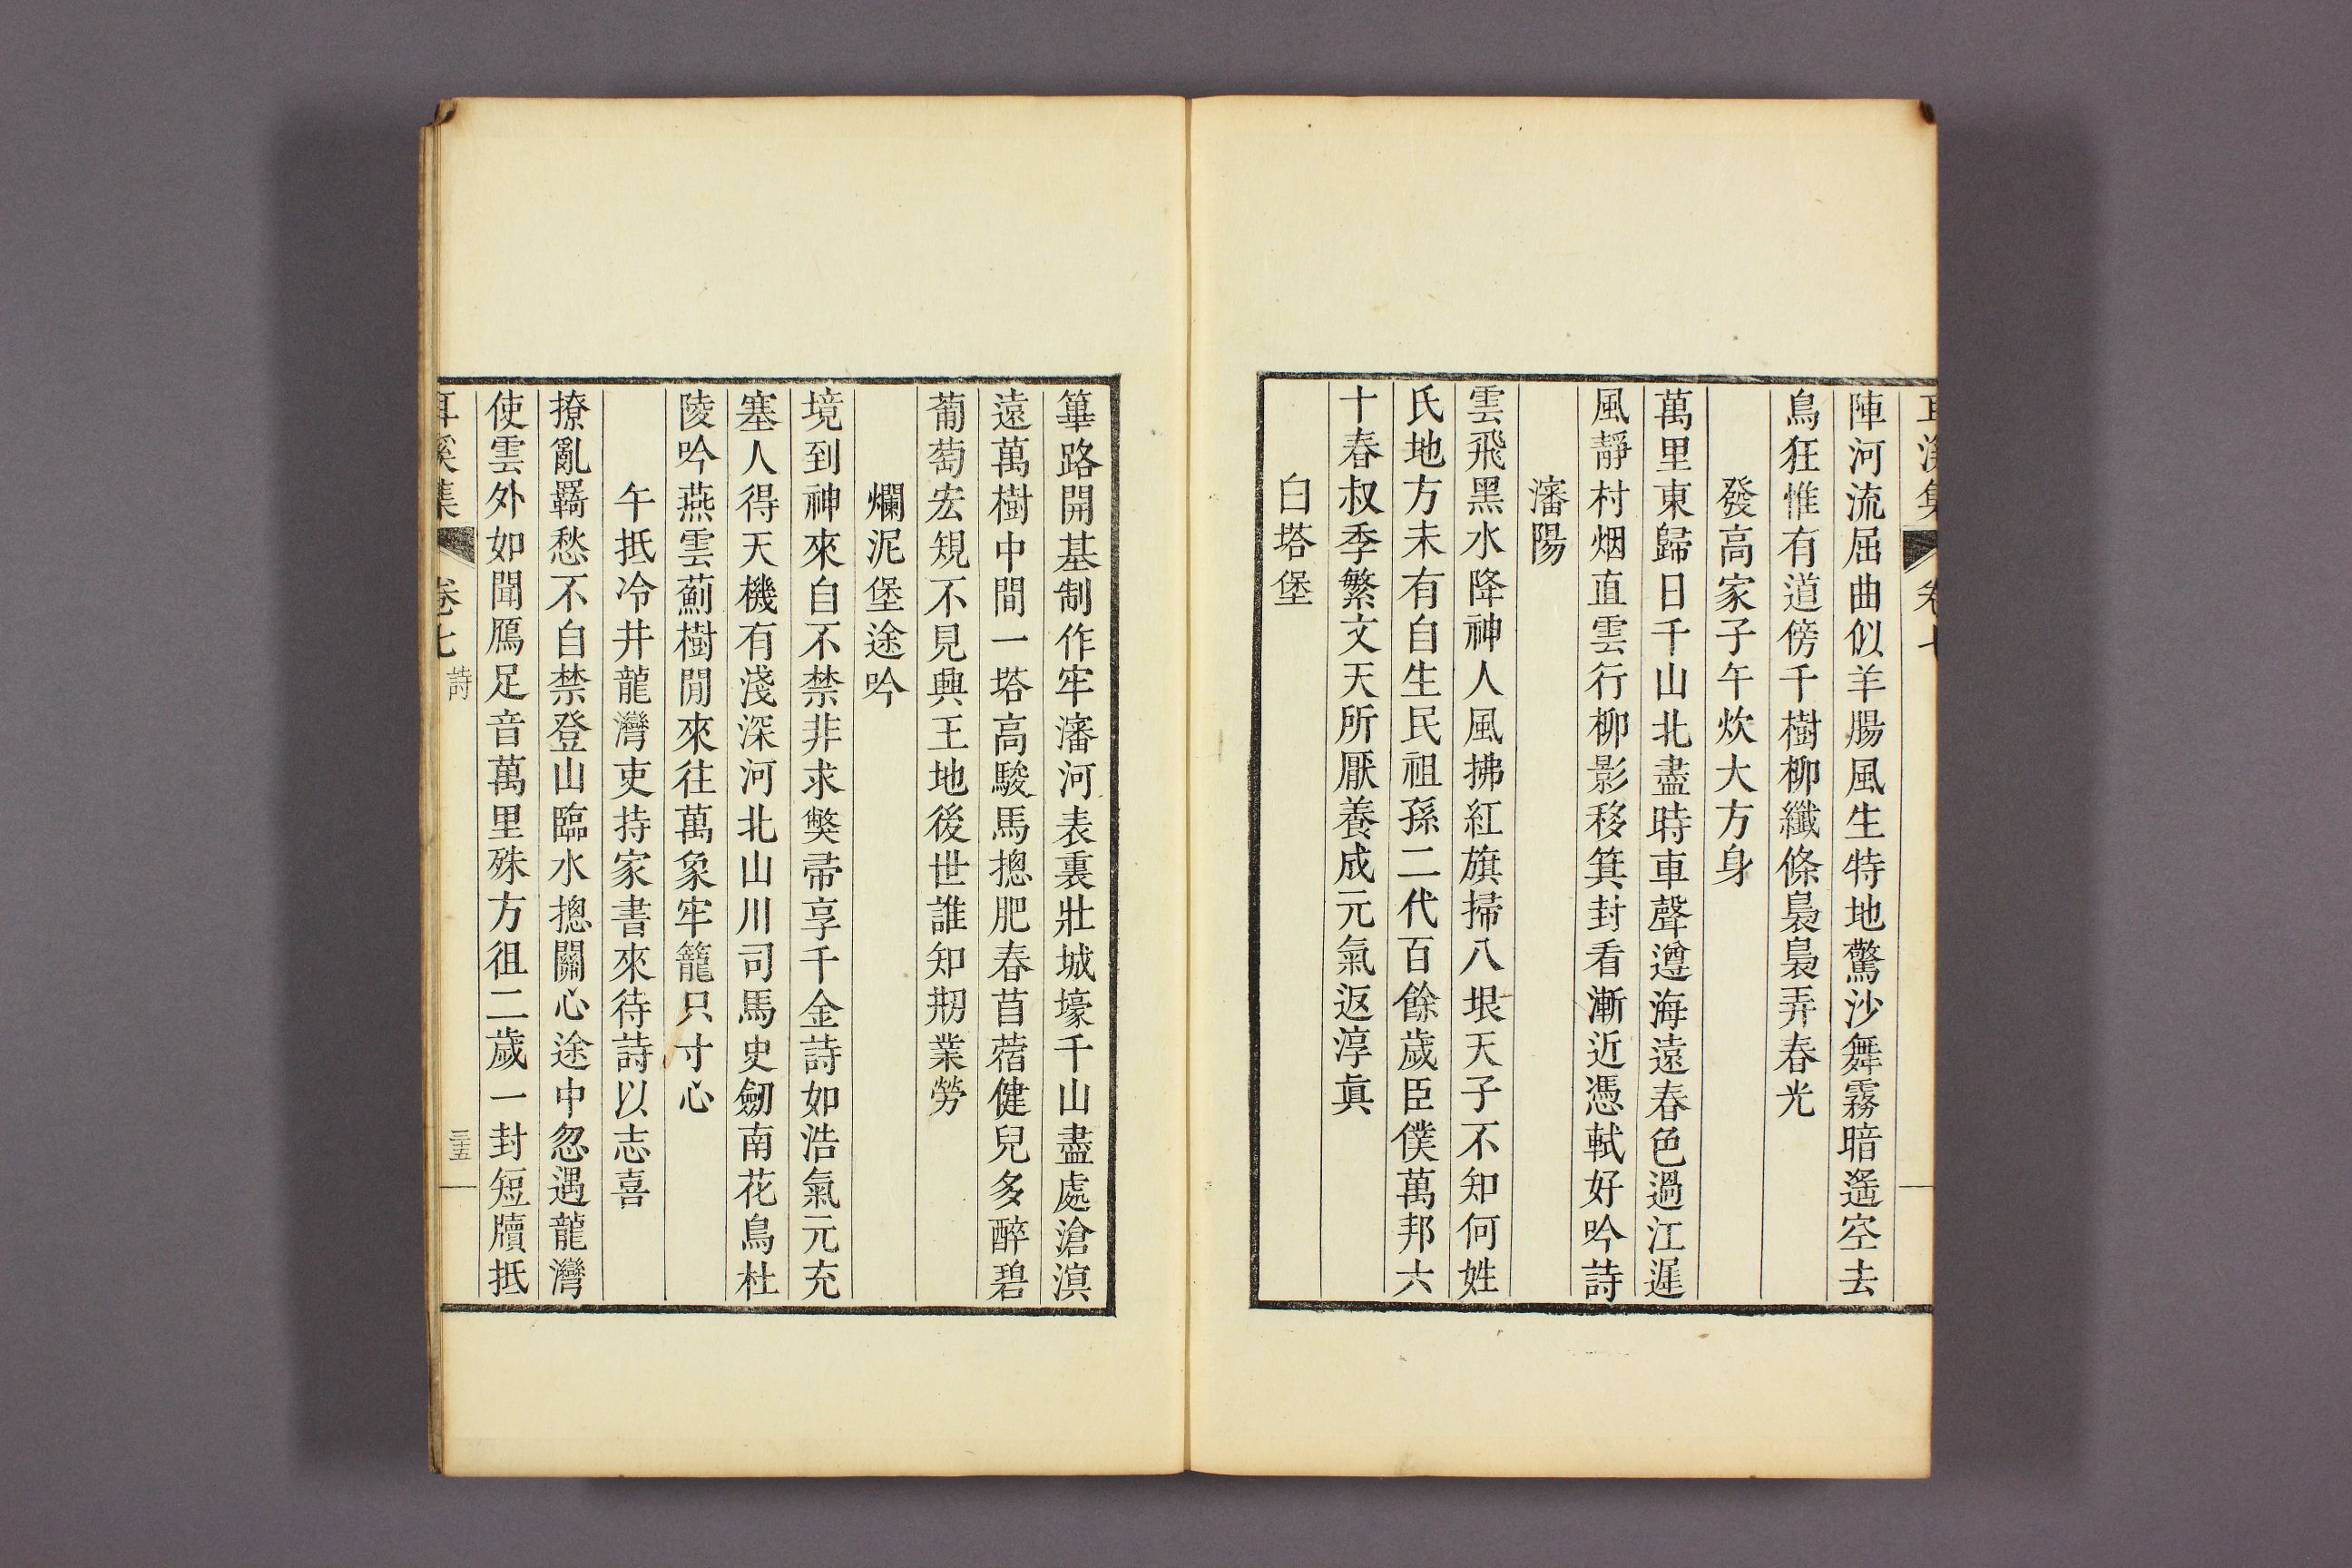 耳溪集 卷七
陣河流屈曲似羊腸風生特地驚沙舞霧暗遙空去
鳥狂惟有道傍千樹柳纖條裊裊弄春光
發高家子午炊大方身
萬里東歸日千山北盡時車聲遵海遠春色過江遲
風靜村烟直雲行柳影移箕封看漸近憑軾好吟詩
瀋陽
雲飛黑水降神人風拂紅旗掃八垠天子不知何姓
氏地方未有自生民祖孫二代百餘歲臣僕萬邦六
十春叔季繁文天所厭養成元氣返淳眞
白塔堡
篳路開基制作牢瀋河表裏壯城壕千山盡處滄溟
遠萬樹中間一塔高駿馬摠肥春苜蓿健兒多醉碧
葡萄宏規不見興王地後世誰知剏業勞
爛泥堡途吟
境到神來自不禁非求獘帚享千金詩如浩氣元充
塞人得天機有淺深河北山川司馬史劒南花鳥杜
陵吟燕雲薊樹閒來往萬象牢籠只寸心
午抵冷井龍灣吏持家書來待詩以志喜
撩亂羇愁不自禁登山臨水摠關心途中忽遇龍灣
使雲外如聞鴈足音萬里殊方徂二歲一封短牘抵
耳溪集 卷七 詩 三五